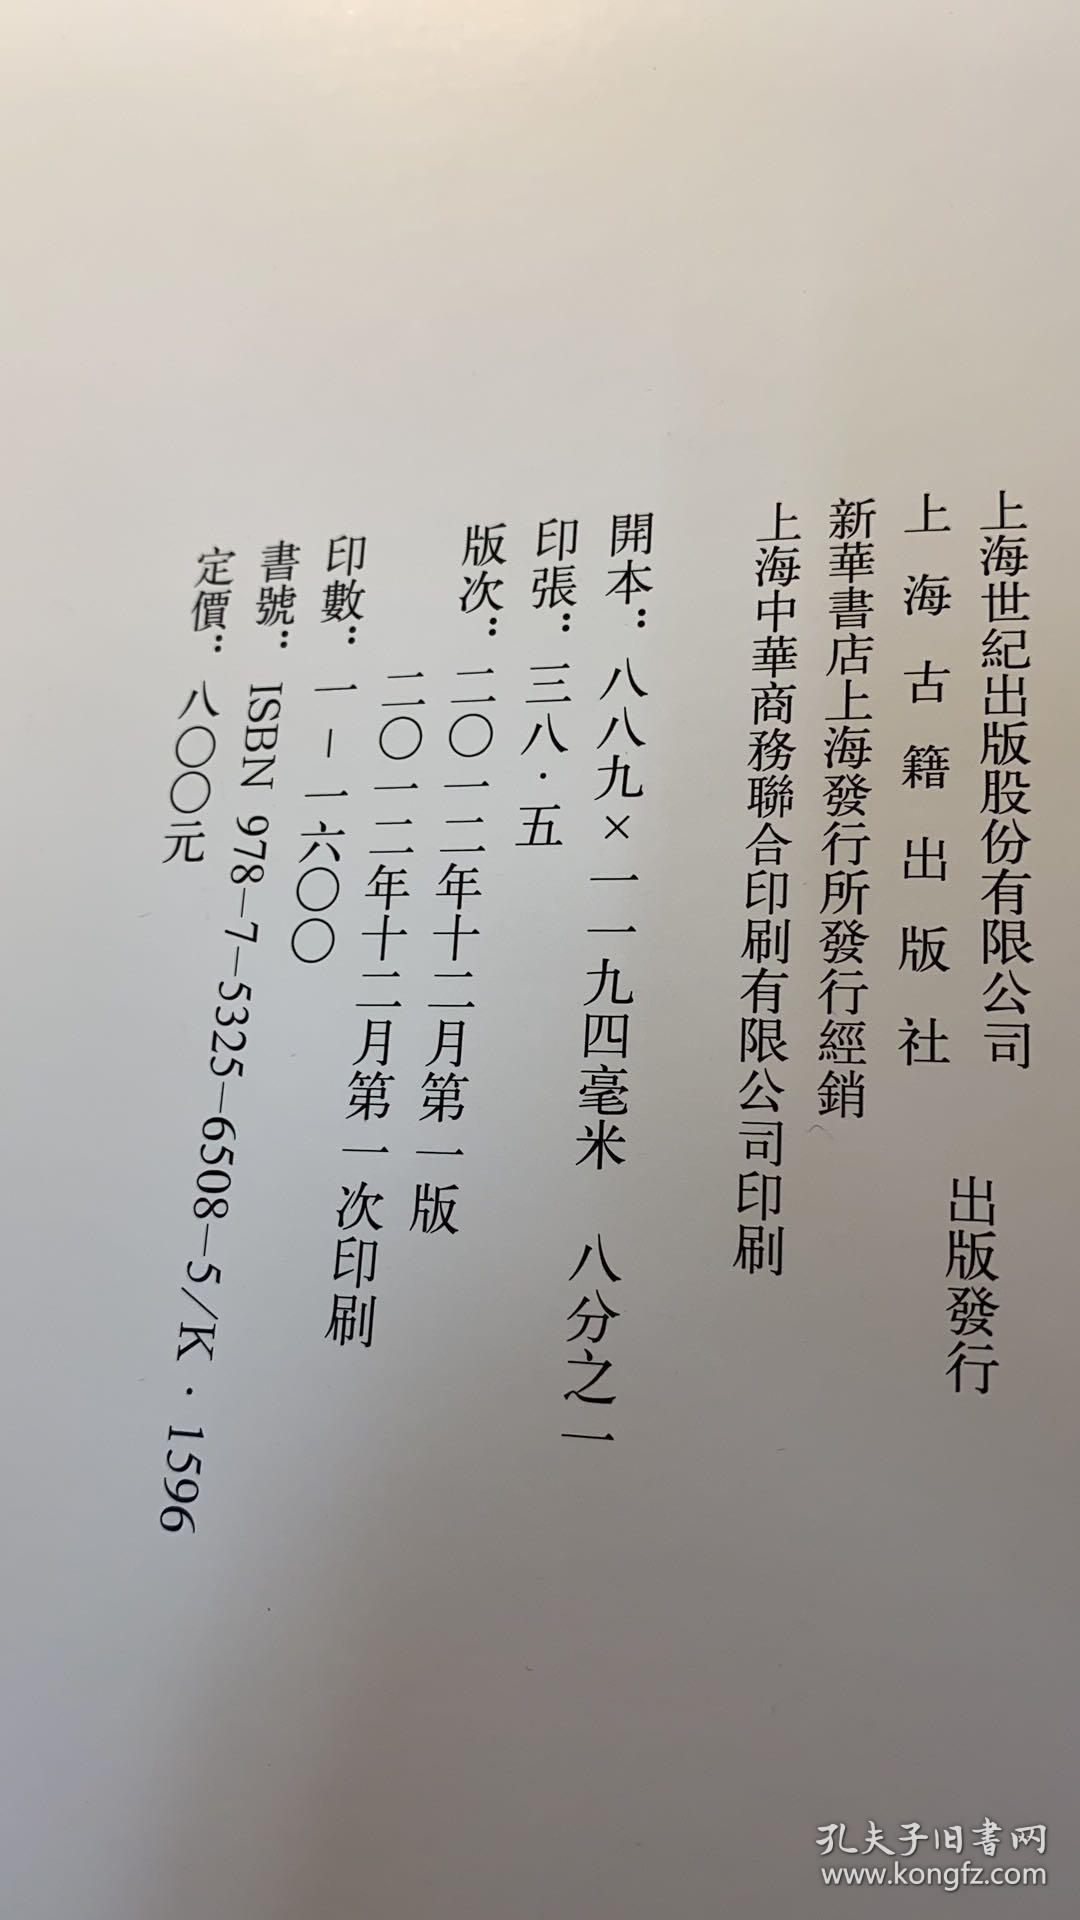 上海世紀出版股份有限公司
上海古籍出版社
出版發行
新華書店上海發行所發行經銷
上海中華商務聯合印刷有限公司印刷
開本：八八九×一一九四毫米 八分之一
印張：三八·五
版次：二〇一二年十二月第一版
二〇一二年十二月第一次印刷
印數：一－一六〇〇
書號：ISBN 978-7-5325-6508-5/K·1596
定價：八〇〇元
孔夫子旧書网
www.kongfz.com